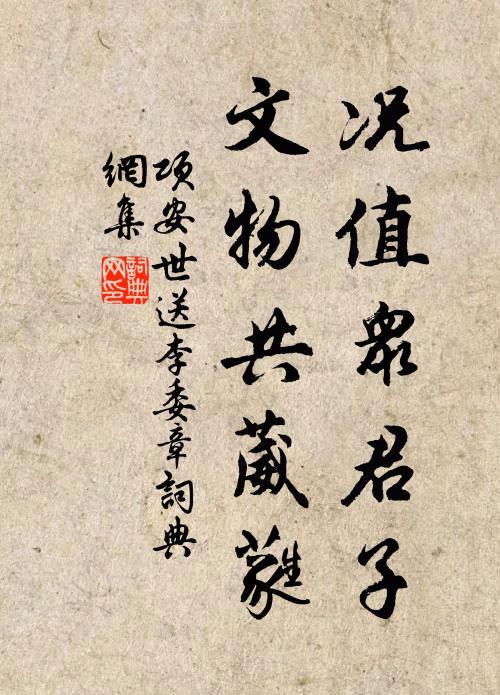 况值衆君子
文物共葳蕤
項安世送李委章詞典
網集
詞典網印